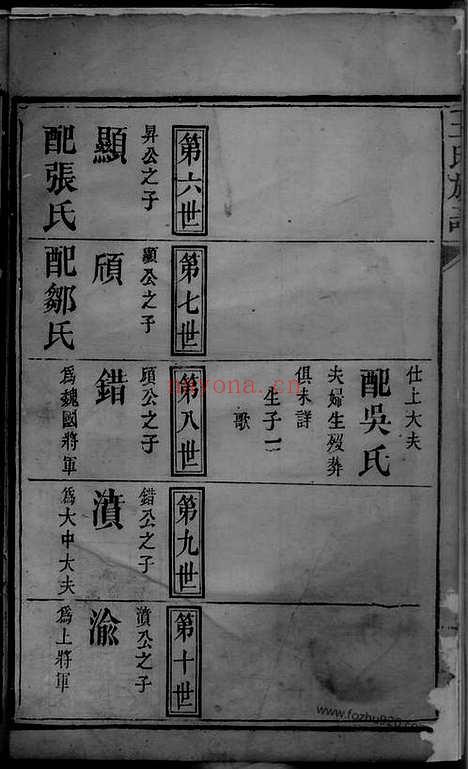 王氏族譜
仕上大夫
配吳氏
夫婦生歿葬
俱未詳
生子一
歌
第六世
昇公之子
顯
配張氏
第七世
顯公之子
頎
配鄒氏
第八世
頎公之子
錯
為魏國將軍
第九世
錯公之子
濆
為大中大夫
第十世
濆公之子
渝
為上將軍
nayona.cn
www.fozhu920.com